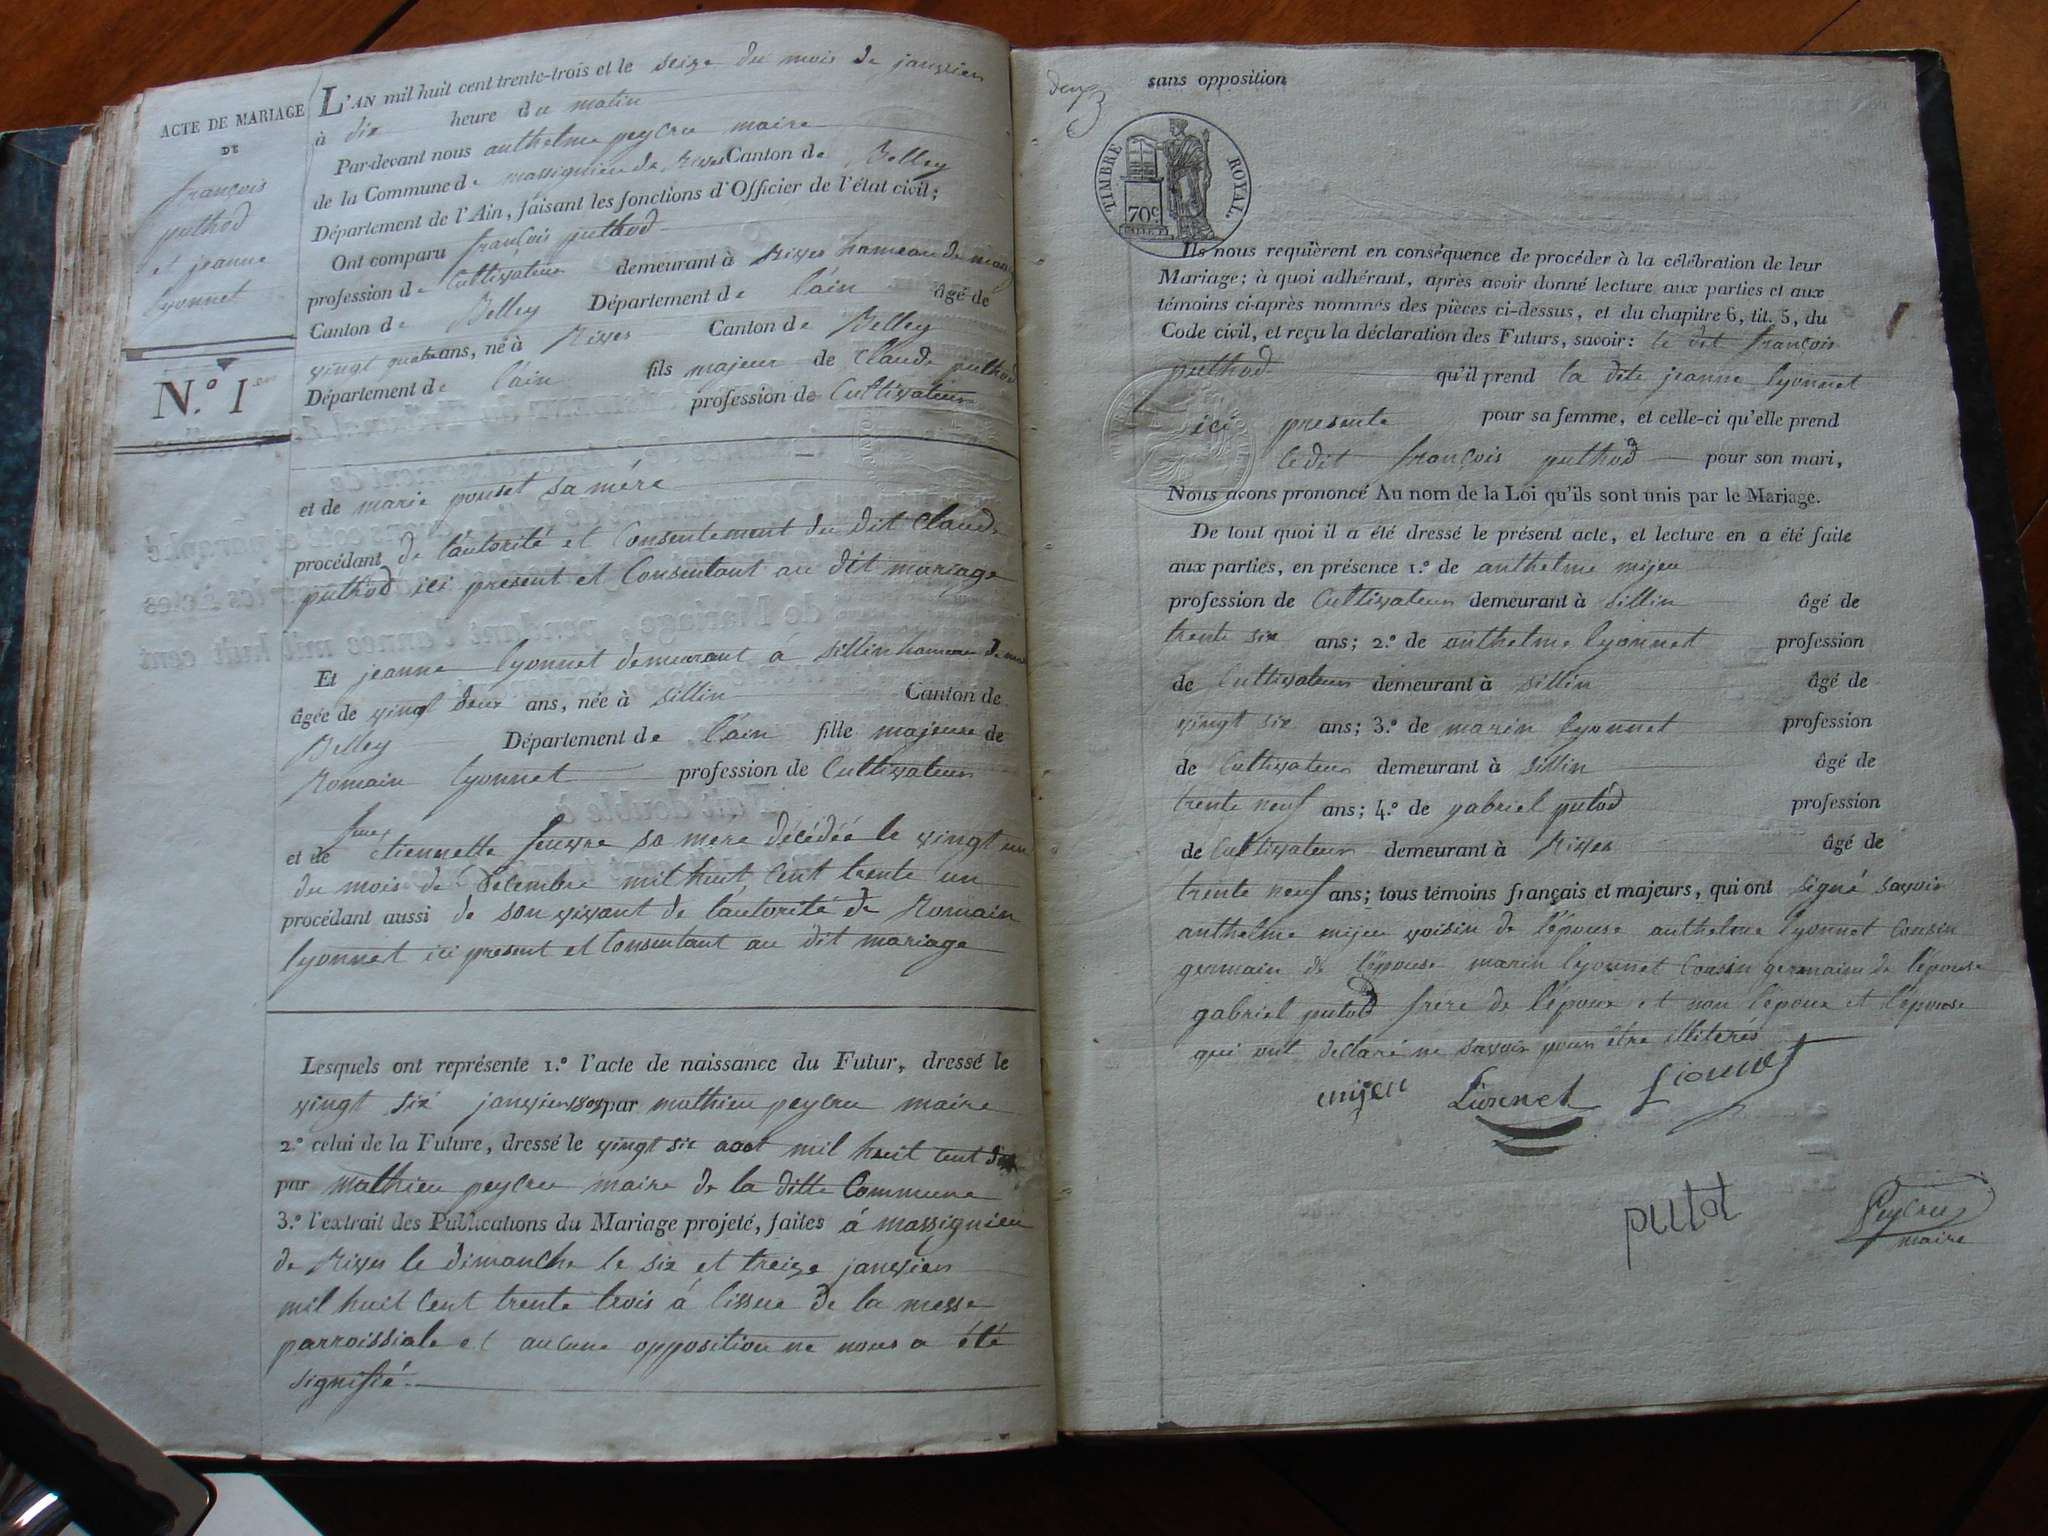 ACTE DE MARIAGE
DE
françois
puthod
et jeanne
lyonnet
N.º 1er
L'AN mil huit cent trente-trois et le seize du mois de janvier
à dix heure du matin
Par-devant nous anthelme peycru maire
de la Commune de massignieu de Rives Canton de Belley
Département de l'Ain, faisant les fonctions d'Officier de l'état civil;
Ont comparu françois puthod
profession de Cultivateur demeurant à Rives hameau de
Canton de Belley Département de l'ain âgé de
vingt quatre ans, né à Rives Canton de Belley
Département de l'ain fils majeur de Claude puthod
profession de Cultivateur
et de marie pouset sa mére
procédant de l'autorité et Consentement du dit Claude
puthod ici present et Consentant au dit mariage
Et jeanne lyonnet demeurant à sillin hameau de
âgée de vingt deux ans, née à sillin Canton de
Belley Département de l'ain fille majeure de
Romain lyonnet profession de Cultivateur
et de etiennette feuvre sa mere décédée le vingt un
du mois de Decembre mil huit Cent trente un
procédant aussi de son vivant de l'autorité de Romain
lyonnet ici present et Consentant au dit mariage
Lesquels ont représenté 1.º l'acte de naissance du Futur, dressé le
vingt six janvier par mathieu peycru maire
2.º celui de la Future, dressé le vingt six aout mil huit cent
par mathieu peycru maire de la ditte Commune
3.º l'extrait des Publications du Mariage projeté, faites á massignieu
de Rives le dimanche le six et treize janvier
mil huit Cent trente trois á lissue de la messe
parroissiale et aucune opposition ne nous a été
signifié.
sans opposition
TIMBRE ROYAL.
70c
Ils nous requièrent en conséquence de procéder à la célébration de leur
Mariage; à quoi adhérant, après avoir donné lecture aux parties et aux
témoins ci-après nommés des pièces ci-dessus, et du chapitre 6, tit. 5, du
Code civil, et reçu la déclaration des Futurs, savoir: le dit françois
puthod qu'il prend la dite jeanne lyonnet
ici presente pour sa femme, et celle-ci qu'elle prend
ledit françois puthod pour son mari,
Nous avons prononcé Au nom de la Loi qu'ils sont unis par le Mariage.
De tout quoi il a été dressé le présent acte, et lecture en a été faite
aux parties, en présence 1.º de anthelme mijeu
profession de Cultivateur demeurant à sillin âgé de
trente six ans; 2.º de anthelme lyonnet profession
de Cultivateur demeurant à sillin âgé de
vingt six ans; 3.º de marin lyonnet profession
de Cultivateur demeurant à sillin âgé de
trente neuf ans; 4.º de gabriel putod profession
de Cultivateur demeurant à Rives âgé de
trente neuf ans; tous témoins français et majeurs, qui ont signé savoir
anthelme mijeu voisin de l'épouse anthelme lyonnet Cousin
germain de l'épouse marin lyonnet Cousin germain de l'épouse
gabriel putod frére de l'époux et non l'époux et l'épouse
qui ont declaré ne savoir pour être illiterés
mijeu Lionnet
putot
Peycru
maire